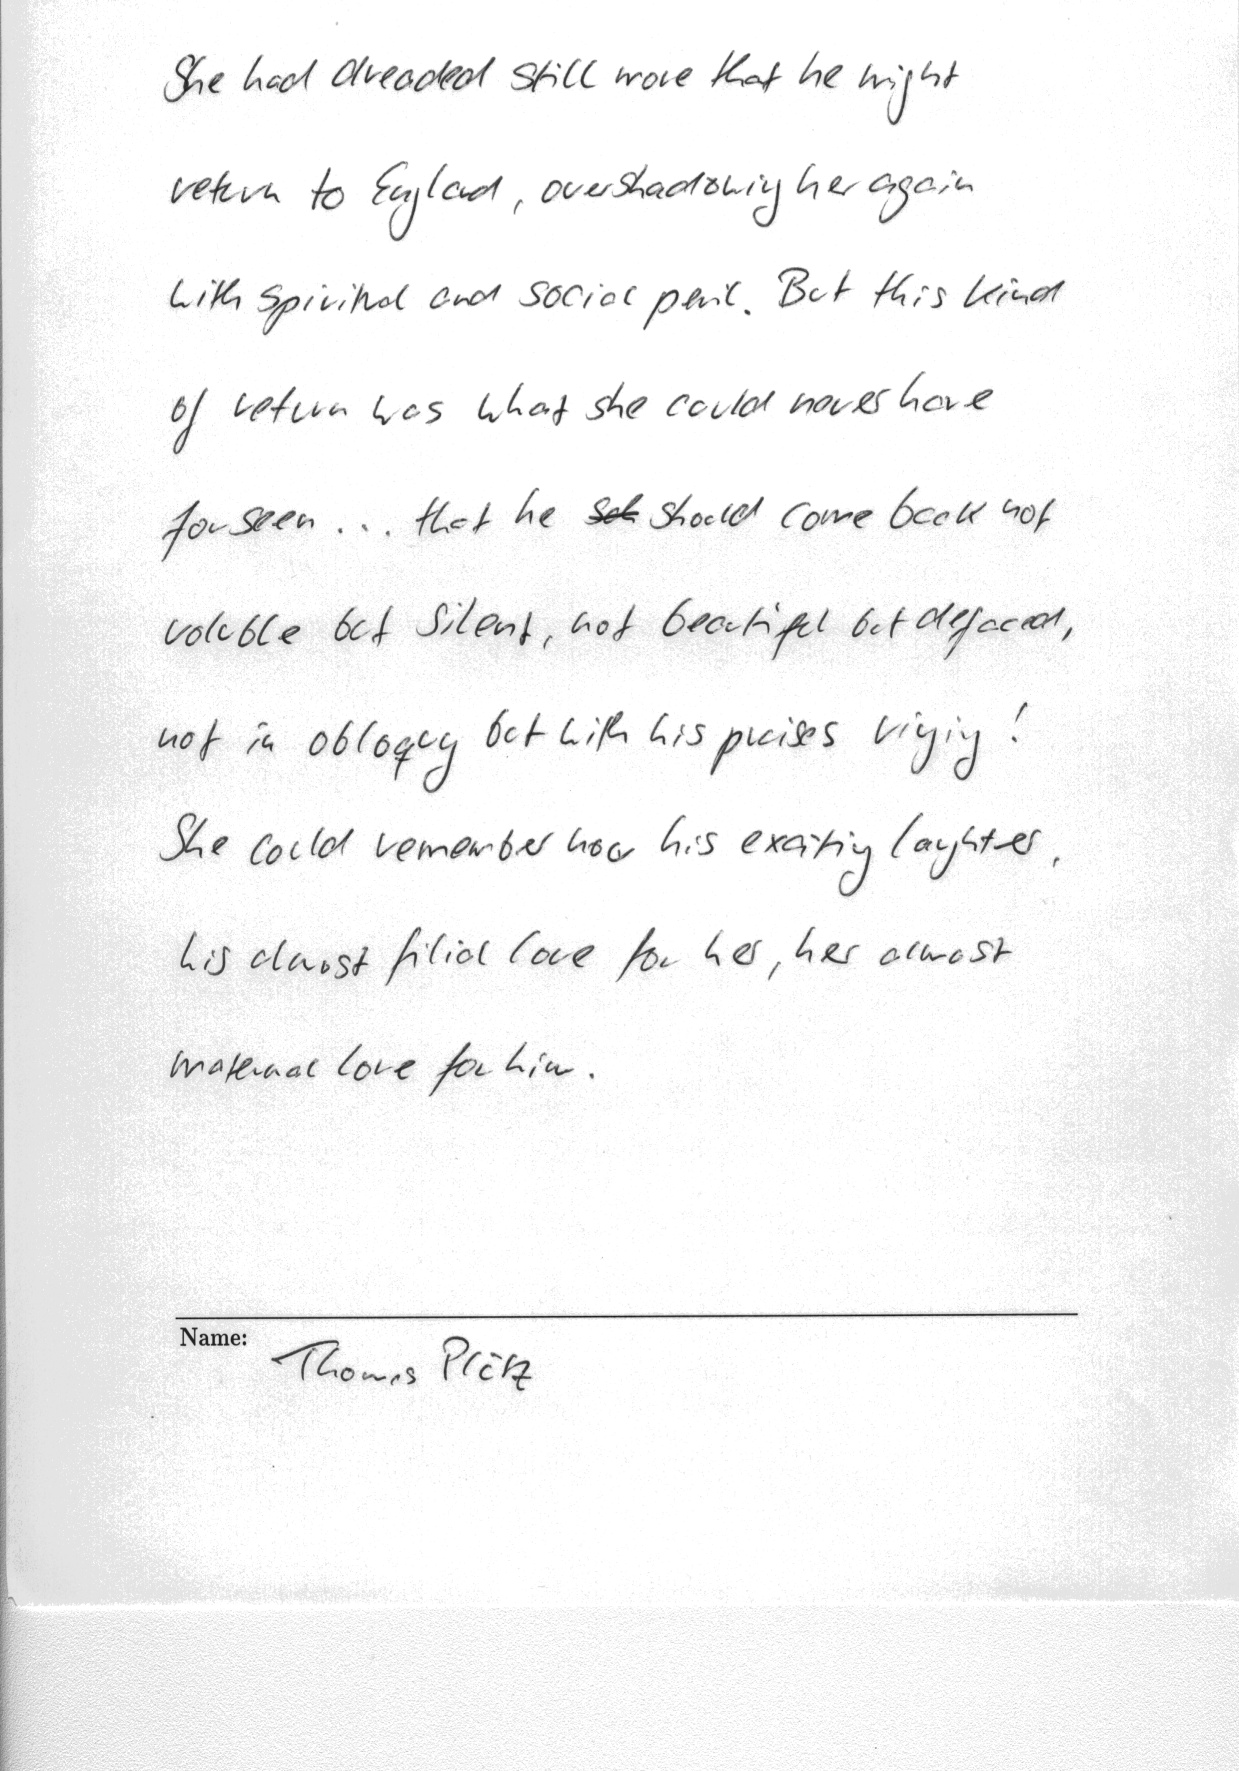 She had dreaded still more that he might
return to England, overshadowing her again
with spiritual and social peril. But this kind
of return was what she could never have
forseen ... that he should come back not
voluble but silent, not beautiful but defaced,
not in obloquy but with his praises ringing!
She could remember now his exciting laughter,
his almost filial love for her, her almost
maternal love for him.
Name:
Thomas Plötz